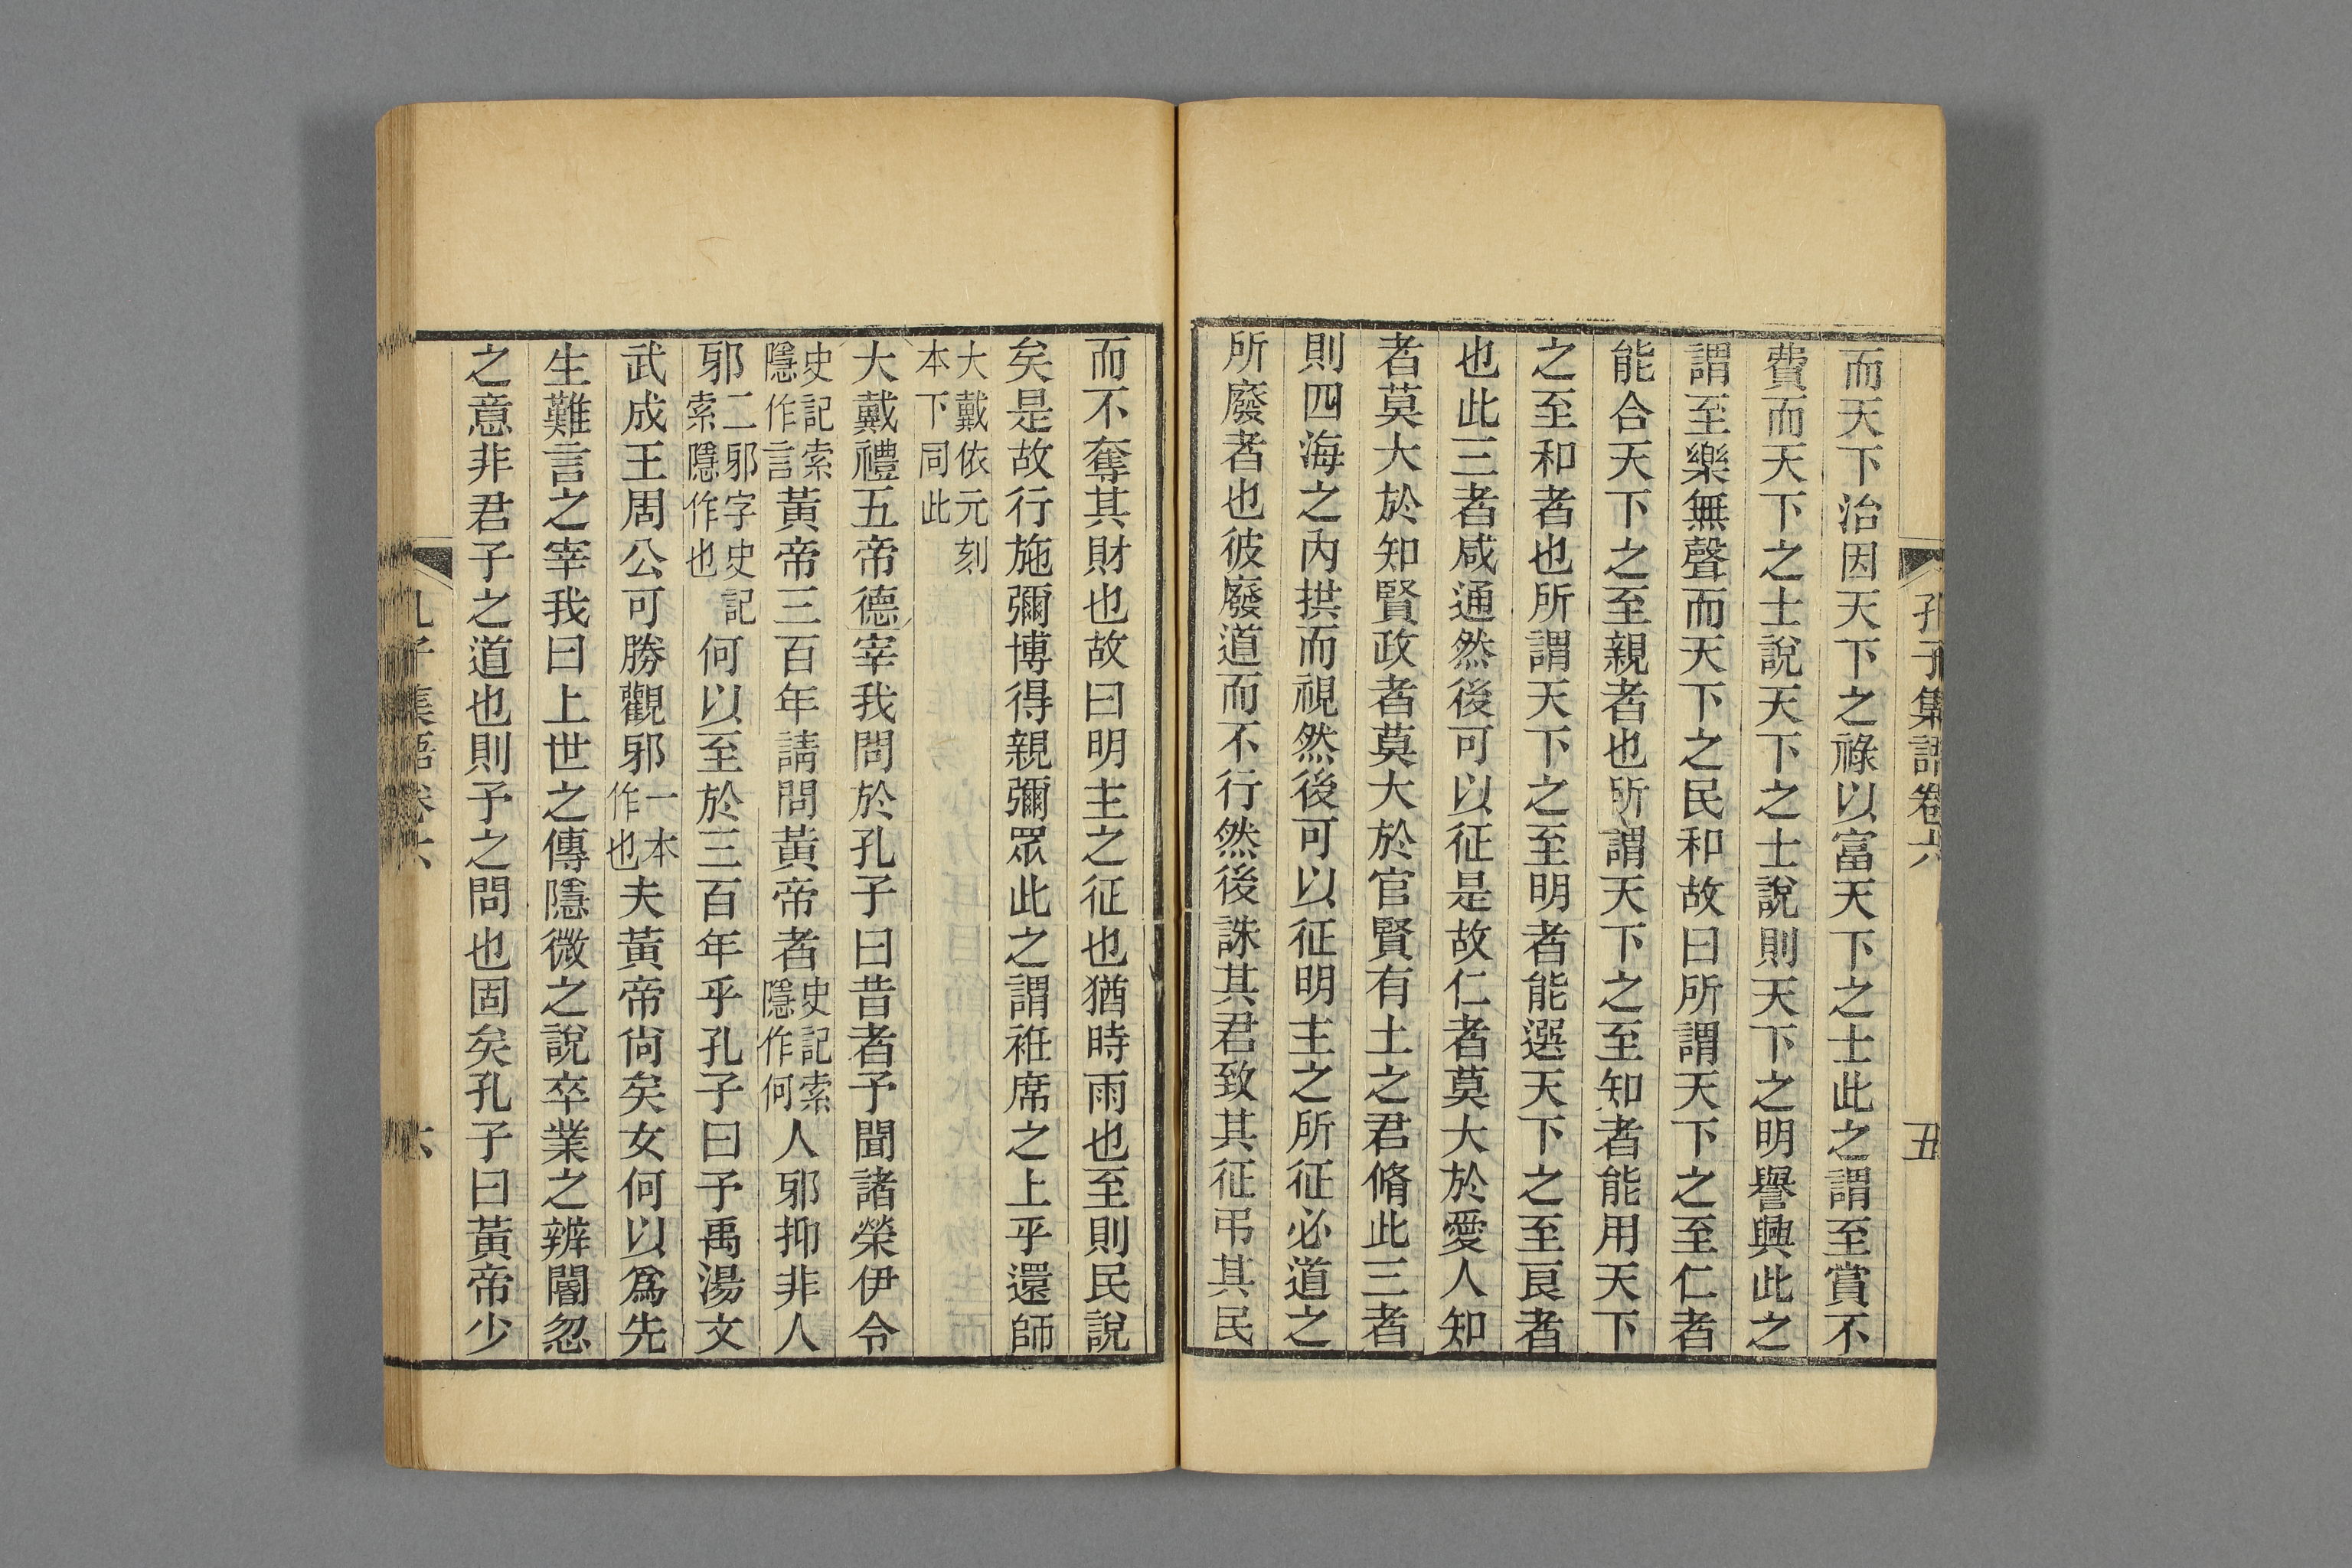 孔子集語卷六
五
而天下治因天下之祿以富天下之士此之謂至賞不
費而天下之士說天下之士說則天下之明譽興此之
謂至樂無聲而天下之民和故曰所謂天下之至仁者
能合天下之至親者也所謂天下之至知者能用天下
之至和者也所謂天下之至明者能選天下之至良者
也此三者咸通然後可以征是故仁者莫大於愛人知
者莫大於知賢政者莫大於官賢有土之君脩此三者
則四海之內拱而視然後可以征明主之所征必道之
所廢者也彼廢道而不行然後誅其君致其征弔其民
而不奪其財也故曰明主之征也猶時雨也至則民說
矣是故行施彌博得親彌眾此之謂袵席之上乎還師
大戴依元刻
本下同此
大戴禮五帝德宰我問於孔子曰昔者予聞諸榮伊令
史記索隱作言黃帝三百年請問黃帝者史記索隱作何人邪抑非人
邪二邪字史記索隱作也何以至於三百年乎孔子曰予禹湯文
武成王周公可勝觀邪一本作也夫黃帝尙矣女何以爲先
生難言之宰我曰上世之傳隱微之說卒業之辨闇忽
之意非君子之道也則予之問也固矣孔子曰黃帝少
孔子集語卷六
六